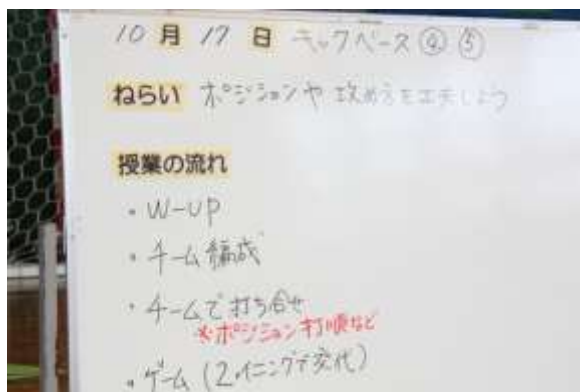 10月17日 キックベース④⑤
ねらい ポジションや攻め方を工夫しよう
授業の流れ
・W-UP
・チーム編成
・チームで打ち合せ
※ポジション打順など
・ゲーム(2イニングで交代)